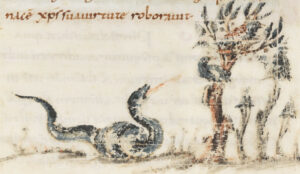 nacē xp̄i suauirtute roborauit